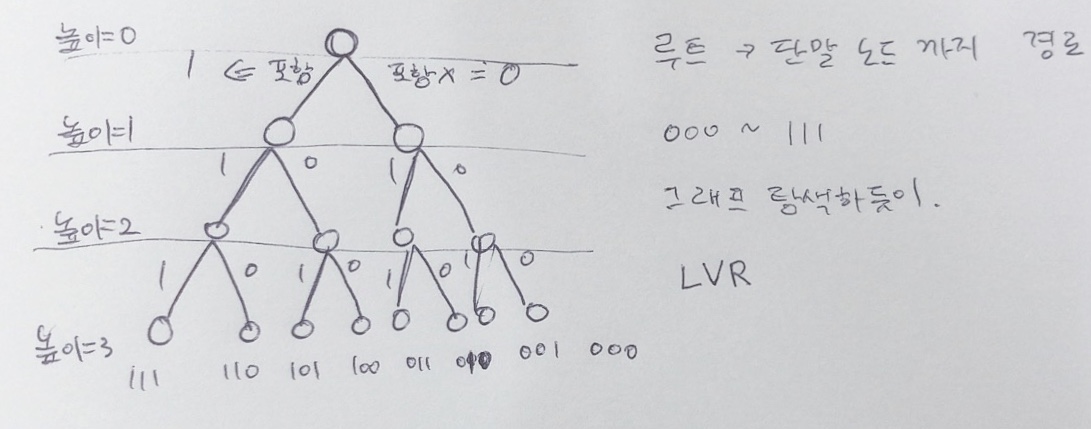 높이=0
1 ⇐ 포함 포함X = 0
높이=1
1 0 1 0
높이=2
1 0 1 0 1 0 1 0
높이=3
111 110 101 100 011 010 001 000
루트 → 단말 노드 까지 경로
000 ~ 111
그래프 탐색하듯이.
LVR